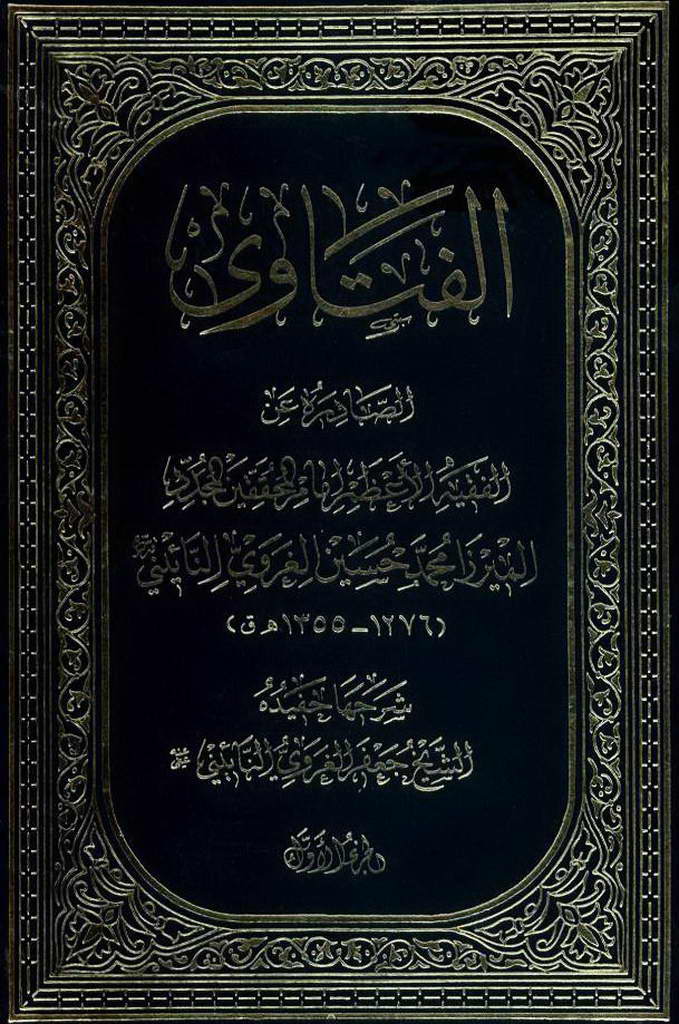 الفَتَاوى
الصَّادِرَةُ عَن
الفَقِيهِ الأَعْظَمِ إِمَامِ المُحَقِّقِينَ المُجَدِّدِ
المِيرْزَا مُحَمَّد حُسَيْن الغَرَوِيِّ النَّائِينِيِّ
(١٢٧٦ - ١٣٥٥ ه‍ ق)
شَرَحَهَا حَفِيدُهُ
الشَّيْخ جَعْفَر الغَرَوِيُّ النَّائِينِيّ
الجُزْءُ الأَوَّلُ